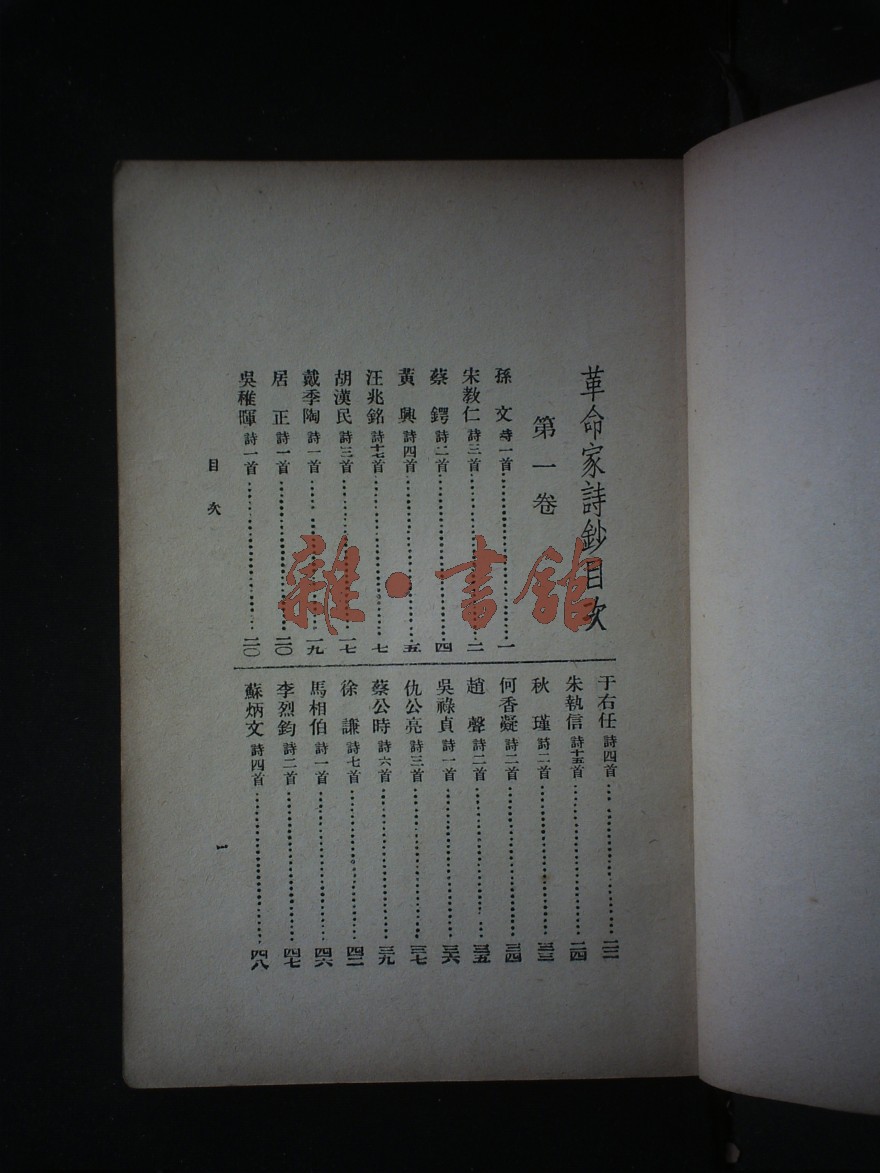 革命家詩鈔目次
第一卷
孫文 詩一首 一
宋教仁 詩三首 二
蔡鍔 詩二首 四
黃興 詩四首 五
汪兆銘 詩十七首 七
胡漢民 詩三首 一七
戴季陶 詩一首 一九
居正 詩一首 二〇
吳稚暉 詩一首 二〇
于右任 詩四首 二二
朱執信 詩十五首 二四
秋瑾 詩二首 三三
何香凝 詩二首 三四
趙聲 詩二首 三五
吳祿貞 詩一首 三六
仇公亮 詩三首 三七
蔡公時 詩六首 三九
徐謙 詩七首 四二
馬相伯 詩一首 四六
李烈鈞 詩二首 四七
蘇炳文 詩四首 四八
目次
一
雜·書館